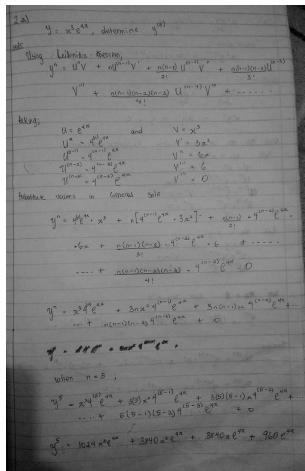 2 a) y = x³e⁴ˣ, determine y⁽⁵⁾
soln
Using Leibnitz theorem,
yⁿ = UⁿV + nU⁽ⁿ⁻¹⁾V' + n(n-1)/2! U⁽ⁿ⁻²⁾V'' + n(n-1)(n-2)/3! U⁽ⁿ⁻³⁾
V''' + n(n-1)(n-2)(n-3)/4! U⁽ⁿ⁻⁴⁾V'''' + ......
taking;
U = e⁴ˣ and V = x³
Uⁿ = 4ⁿe⁴ˣ V' = 3x²
U⁽ⁿ⁻¹⁾ = 4⁽ⁿ⁻¹⁾e⁴ˣ V'' = 6x
U⁽ⁿ⁻²⁾ = 4⁽ⁿ⁻²⁾e⁴ˣ V''' = 6
U⁽ⁿ⁻³⁾ = 4⁽ⁿ⁻³⁾e⁴ˣ V'''' = 0
Substitute values in General Soln
yⁿ = 4ⁿe⁴ˣ · x³ + n[4⁽ⁿ⁻¹⁾e⁴ˣ · 3x²] + n(n-1)/2! · 4⁽ⁿ⁻²⁾e⁴ˣ ·
· 6x + n(n-1)(n-2)/3! · 4⁽ⁿ⁻³⁾e⁴ˣ · 6 + ......
.... + n(n-1)(n-2)(n-3)/4! · 4⁽ⁿ⁻⁴⁾e⁴ˣ · 0
yⁿ = x³4ⁿe⁴ˣ + 3nx²4⁽ⁿ⁻¹⁾e⁴ˣ + 3n(n-1)x4⁽ⁿ⁻²⁾e⁴ˣ + ..
... + n(n-1)(n-2)4⁽ⁿ⁻³⁾e⁴ˣ + 0
when n = 5,
y⁵ = x³4⁽⁵⁾e⁴ˣ + 3(5)x²4⁽⁵⁻¹⁾e⁴ˣ + 3(5)(5-1)x4⁽⁵⁻²⁾e⁴ˣ
.... + 5(5-1)(5-2)4⁽⁵⁻³⁾e⁴ˣ + 0
y⁵ = 1024x³e⁴ˣ + 3840x²e⁴ˣ + 3840xe⁴ˣ + 960e⁴ˣ